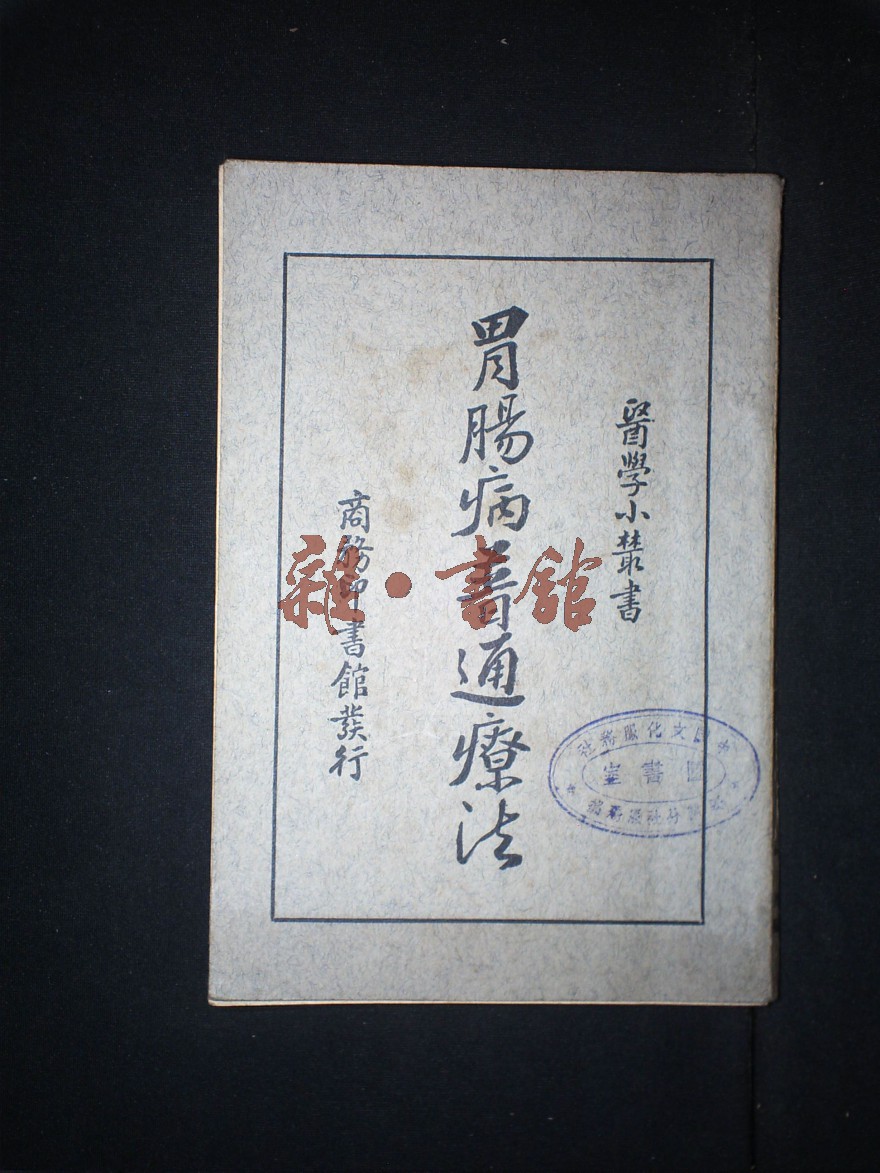 醫學小叢書
胃腸病普通療法
商務印書館發行
雜·書館
中國文化服務社
圖書室